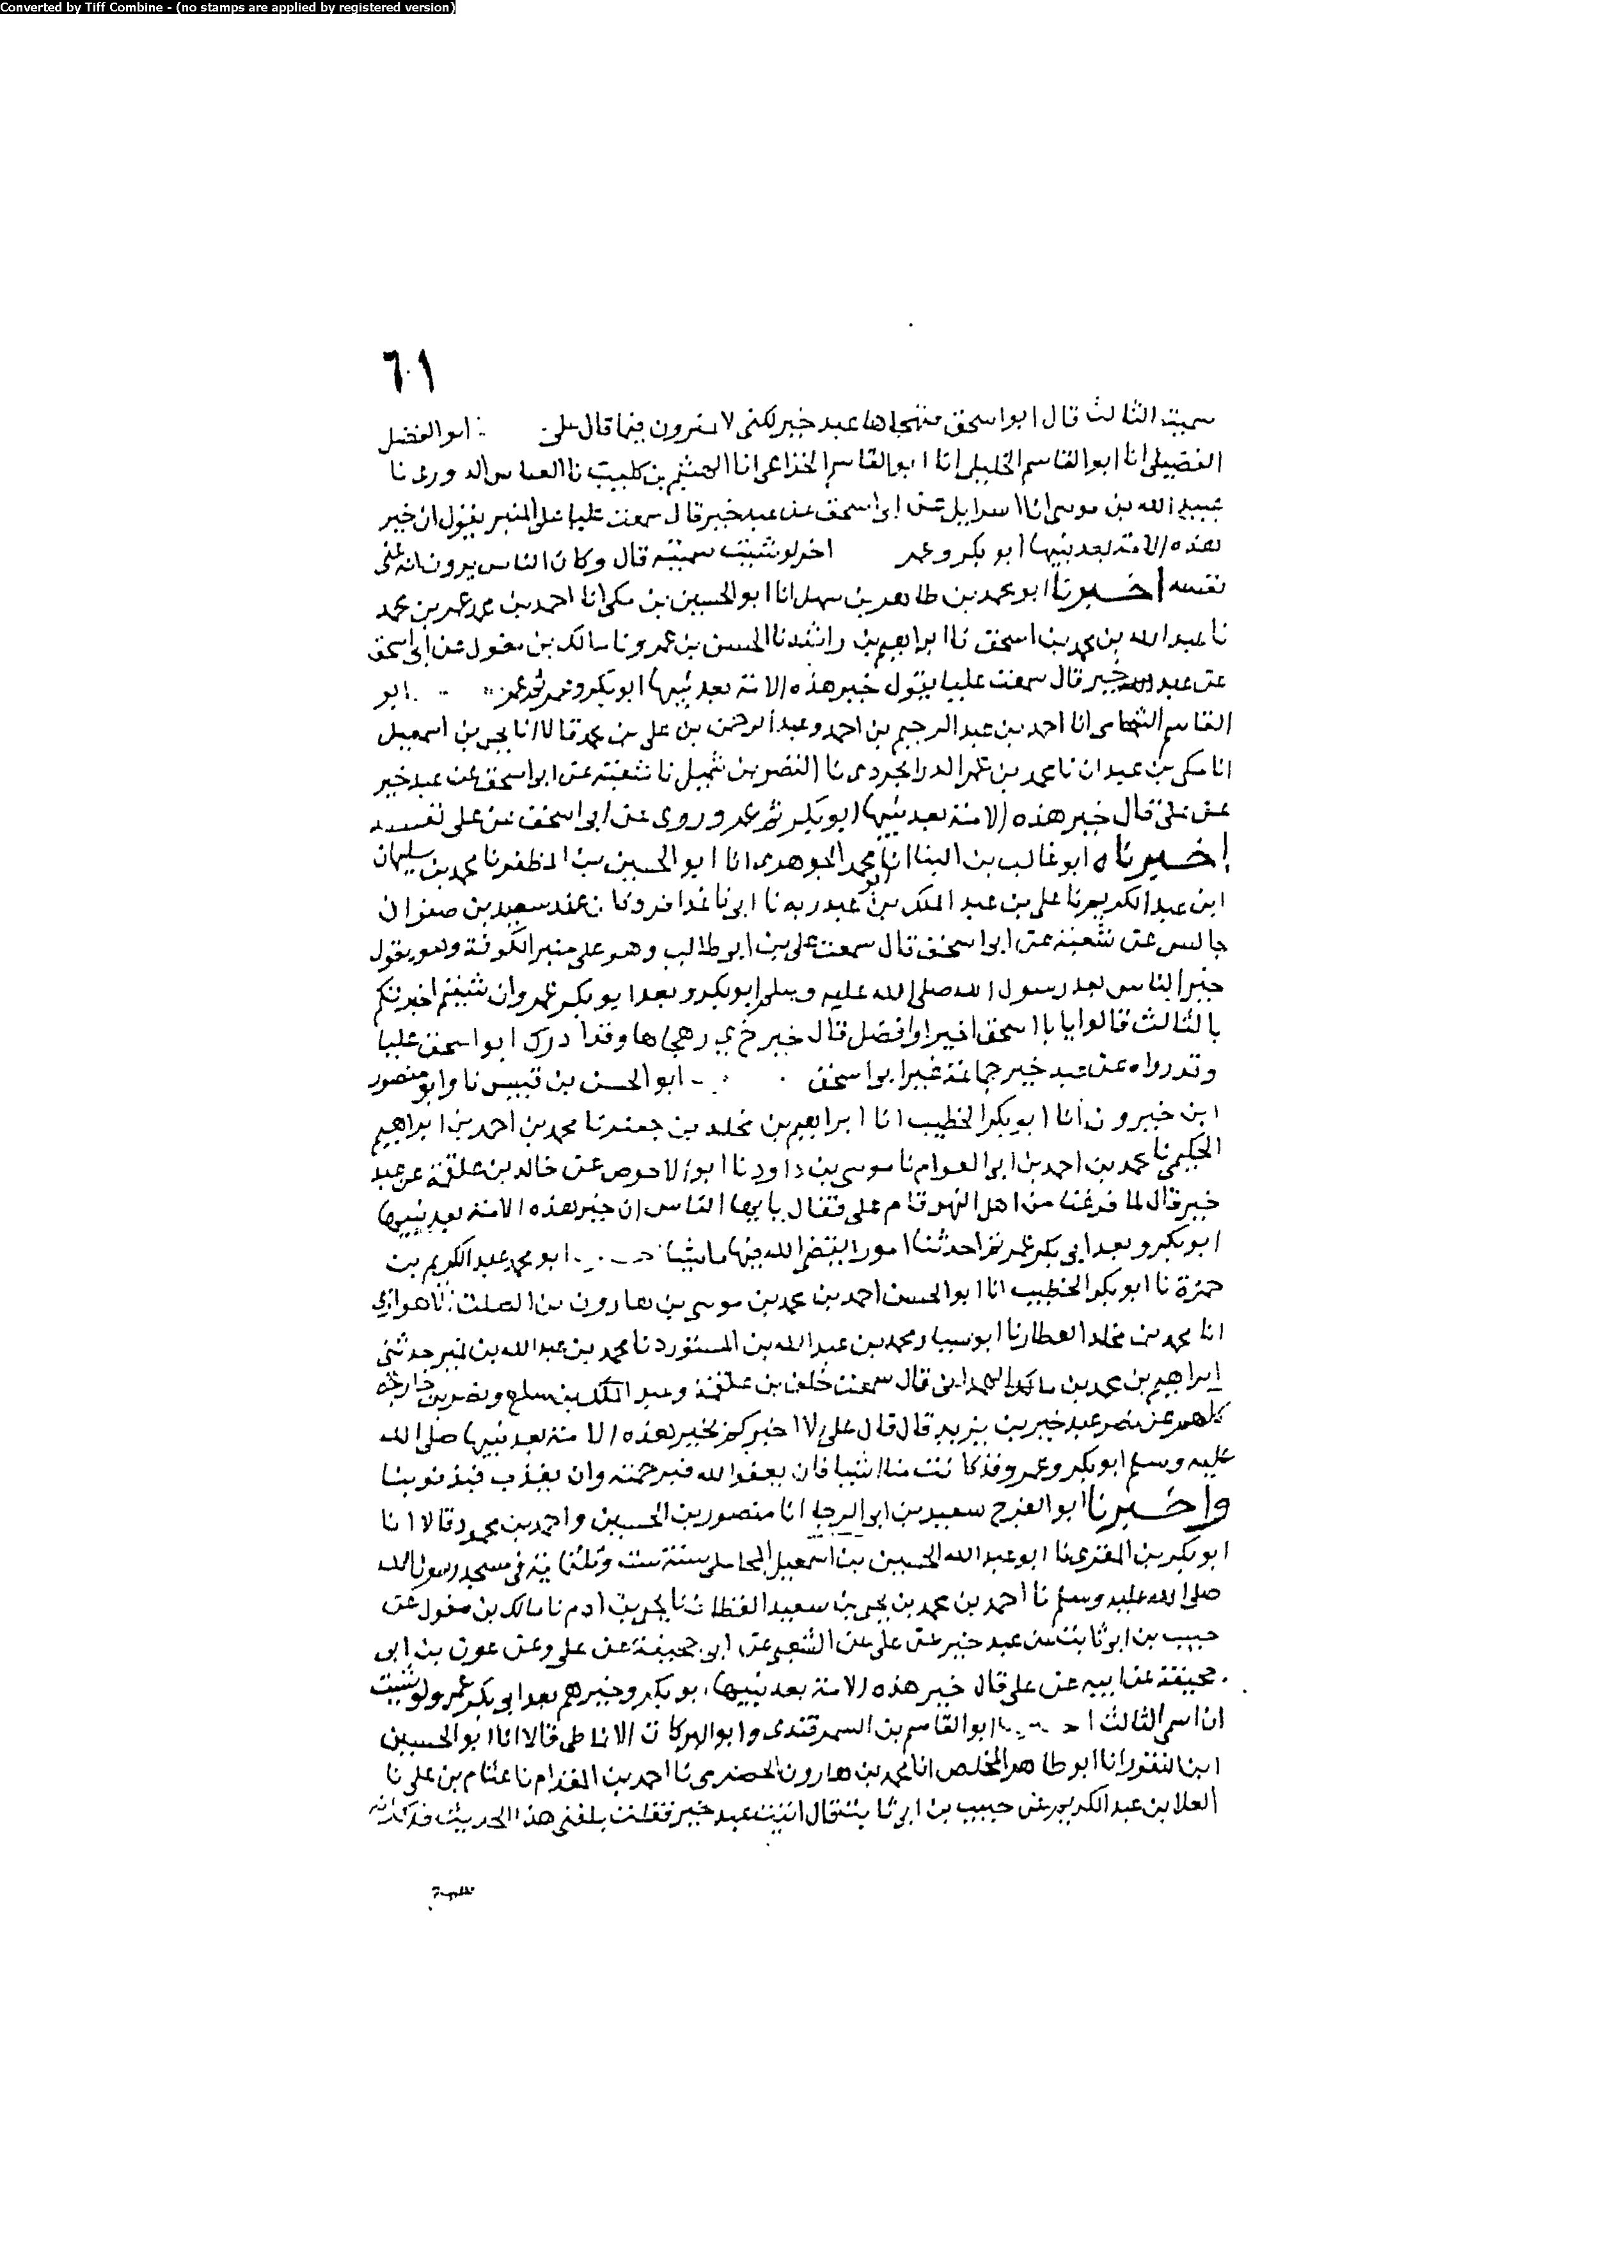 Converted by Tiff Combine - (no stamps are applied by registered version)
٦٠١
سميت الثالث قال ابو اسحق فتهجاها عبد خير لكنى لا تمترون فيما قال على ابو الفضل
الفضيلى انا ابو القاسم الخليلى انا ابو القاسم الخزاعى انا الهيثم بن كليب نا العباس الدورى نا
عبيد الله بن موسى انا اسرايل عن ابى اسحق عن عبد خير قال سمعت عليا على المنبر يقول ان خير
هذه الامة بعد نبيها ابو بكر وعمر اخر لو شيت سميته قال وكان الناس يرون انه عنى
نفسه اخبرنا ابو محمد بن طاهر بن سهل انا ابو الحسين بن مكى انا احمد بن عمر بن محمد
نا عبد الله بن محمد بن اسحق نا ابراهيم بن راشد نا الحسن بن عمرو نا مالك بن مغول عن ابى اسحق
عن عبد خير قال سمعت عليا يقول خير هذه الامة بعد نبيها ابو بكر وعمر ابو
القاسم الشحامى انا احمد بن عبد الرحيم بن احمد وعبد الرحمن بن على بن محمد قالا انا يحيى بن اسمعيل
انا مكى بن عبدان نا محمد بن عمر الدرابجردى نا النضر بن شميل نا شعبة عن ابى اسحق عن عبد خير
عن على قال خير هذه الامة بعد نبيها ابو بكر ثم عمر وروى عن ابى اسحق عن على نفسه
اخبرناه ابو غالب بن البنا انا ابو محمد الجوهرى انا ابو الحسين بن المظفر نا محمد بن سليمان
ابن عبد الكريم نا على بن عبد الملك بن عبد ربه نا ابى نا عند سعيد بن صفوان
جالس عن شعبة عن ابى اسحق قال سمعت على بن ابو طالب وهو على منبر الكوفة وهو يقول
خير الناس بعد رسول الله صلى الله عليه وسلم ابو بكر وبعد ابو بكر عمر وان شيتم اخبرتكم
بالثالث قالوا يا با اسحق اخير او افضل قال خير خ ي ر هجاها وقد ادرك ابو اسحق عليا
وقد رواه عن عبد خير جماعة غير ابو اسحق ابو الحسن بن قبيس نا وابو منصور
ابن خيرون انا ابو بكر الخطيب انا ابراهيم بن مخلد بن جعفر نا محمد بن احمد بن ابراهيم
الحكيمى نا محمد بن احمد بن ابى العوام نا موسى بن داود نا ابو الاحوص عن خالد بن علقمة عن عبد
خير قال لما فرغنا من اهل النهر قام على فقال يا يها الناس ان خير هذه الامة بعد نبيها
ابو بكر وبعد ابى بكر عمر ثم احدثنا امورا يقضى الله فيها ما يشا ابو محمد عبد الكريم بن
حمزة نا ابو بكر الخطيب انا ابو الحسن احمد بن محمد بن موسى بن هارون بن الصلت الاهوازى
انا محمد بن مخلد العطار نا ابو سيار محمد بن عبد الله بن المستورد نا محمد بن عبد الله بن نمير حدثنى
ابراهيم بن محمد بن مالك الهمدانى قال سمعت خلف بن علقمة وعبد الملك بن سلع ونصر بن خارجة
كلهم عن نصر عبد خير بن يزيد قال قال على لا اخبركم بخير هذه الامة بعد نبيها صلى الله
عليه وسلم ابو بكر وعمر وقد كانت منا اشيا فان يعفو الله فبرحمته وان يعذب فبذنوبنا
واخبرنا ابو الفرج سعيد بن ابى الرجا انا منصور بن الحسين واحمد بن محمود قالا انا
ابو بكر بن المقرى نا ابو عبد الله الحسين بن اسمعيل المحاملى سنة ست وثلثماية فى مسجد رسول الله
صلى الله عليه وسلم نا احمد بن محمد بن يحيى بن سعيد القطان نا يحيى بن ادم نا مالك بن مغول عن
حبيب بن ابو ثابت عن عبد خير عن على عن الشعبى عن ابى جحيفة عن على وعن عون بن ابى
جحيفة عن ابيه عن على قال خير هذه الامة بعد نبيها ابو بكر وخيرهم بعد ابى بكر عمر ولو شيت
ان اسمى الثالث ابو القاسم بن السمرقندى وابو البركات الانماطى قالا انا ابو الحسين
ابن النقور انا ابو طاهر المخلص انا محمد بن هارون الحضرمى نا احمد بن المقدام نا عثام بن على نا
العلا بن عبد الكريم عن حبيب بن ابى ثابت قال اتيت عبد خير فقلت بلغنى هذا الحديث